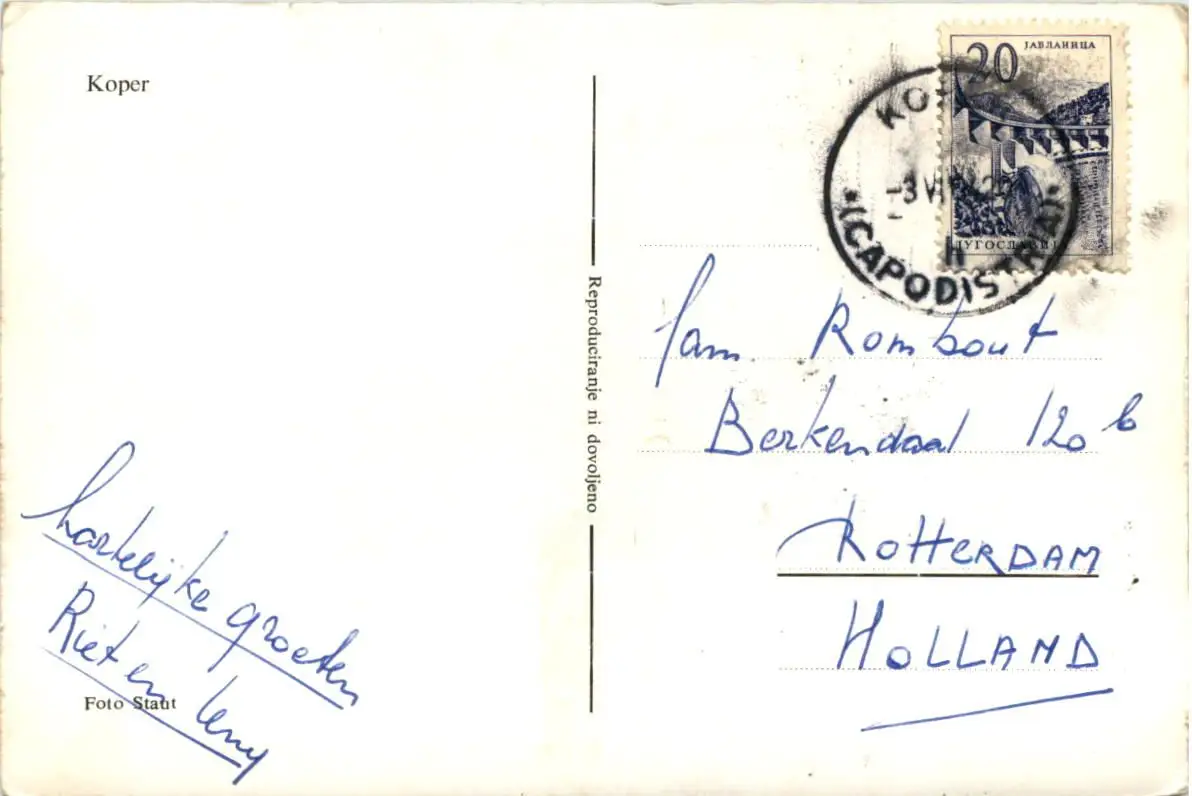 Koper
20
ЈАБЛАНИЦА
ЈУГОСЛАВИЈА
(CAPODISTRIA)
Reproduciranje ni dovoljeno
fam Rombout
Berkendaal 120 b
ROTTERDAM
HOLLAND
hartelijke groeten
Riet en Leny
Foto Staut